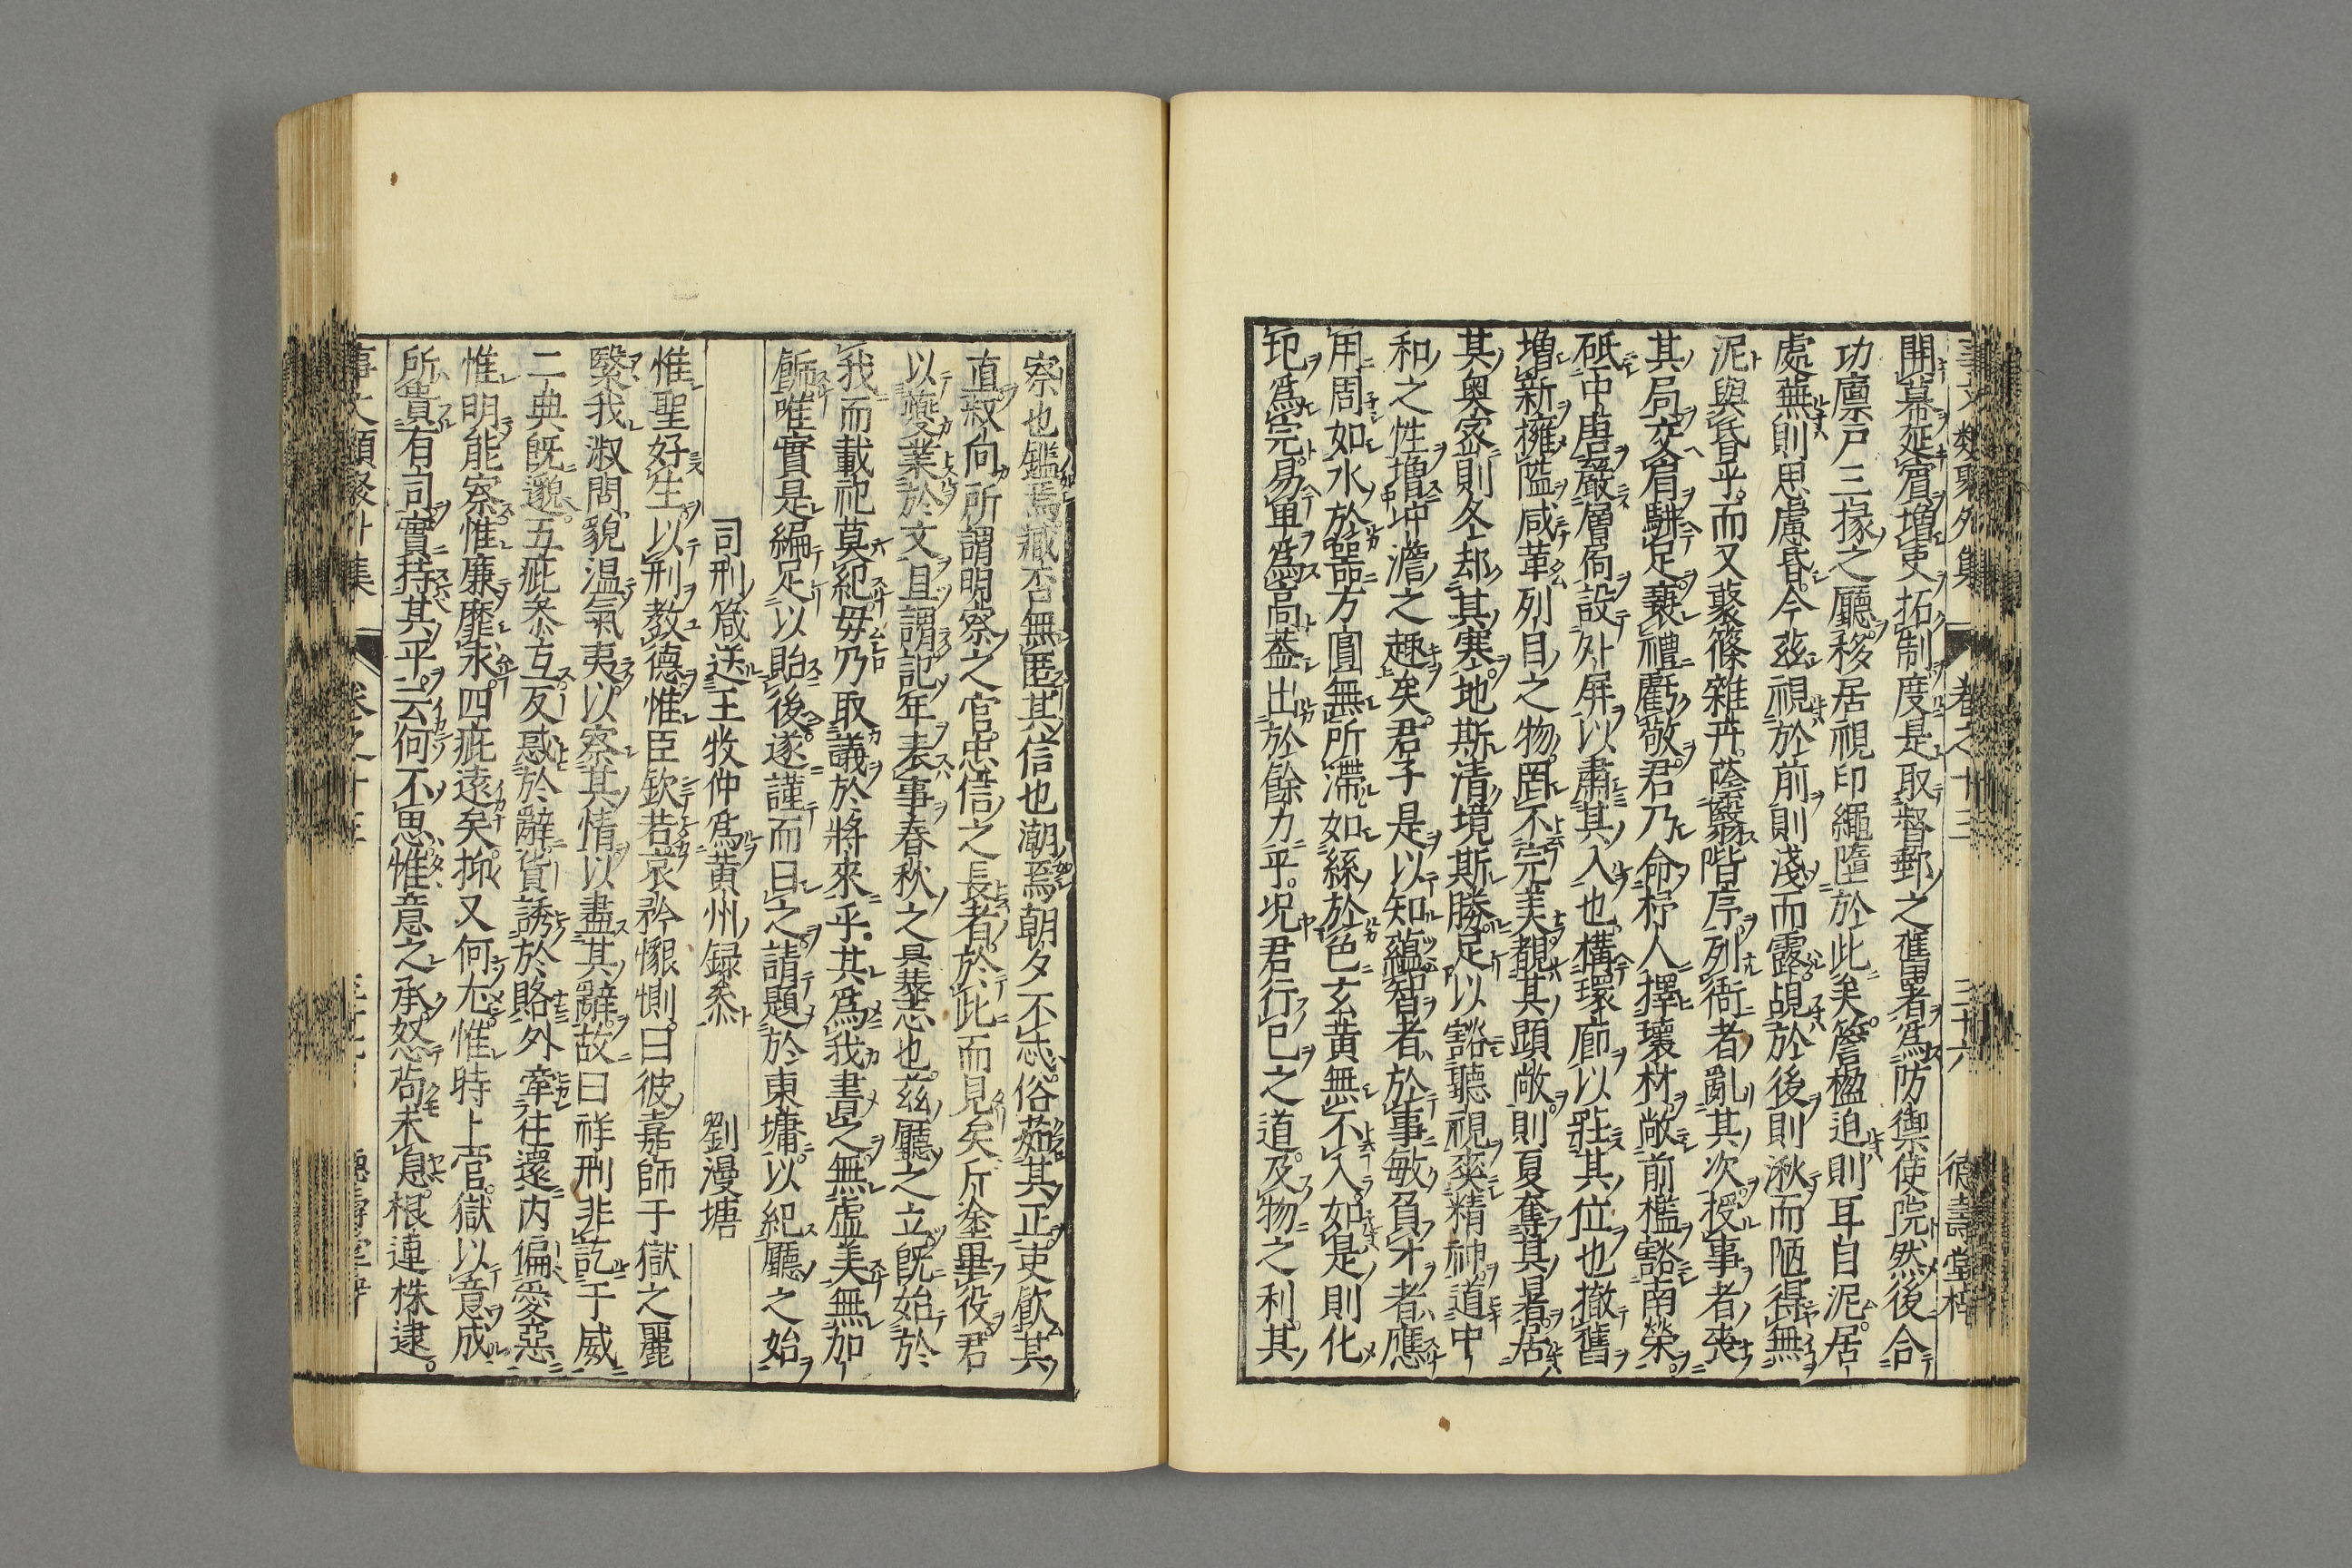 開幕延賓增吏拓制度是取督郵之舊署爲防禦使院然後合
功廪戸三掾之廳移居視印繩墮於此矣簷楹迫則耳自泥居
處蕪則思慮昏今茲視於前則淺而露覘於後則湫而陋得無
泥與昏乎而又叢篠雜卉蔭翳階序列衙者亂其次授事者喪
其局交肩駢足褻禮虧敬君乃命杍人擇瓌材敞前檻豁南榮
砥中唐嚴層扃設外屏以肅其入也構環廊以壯其位也撤舊
增新擁隘咸革列目之物罔不完美觀其顕敞則夏奪其暑居
其奥密則冬却其寒地斯清境斯勝足以豁聽視爽精神道中
和之性增冲澹之趣矣君子是以知蘊智者於事敏負才者應
用周如水於噐方圓無所滯如絲於色玄黄無不入如是則化
圯爲完易卑爲高蓋出於餘力乎况君行已之道及物之利其
察也鑑焉臧否無匿其信也潮焉朝夕不忒俗茹其正吏飮其
直叔向所謂明察之官忠信之長者於此而見矣斤塗畢役君
以夔業於文且謂記年表事春秋之具基志也茲廳之立既始於
我而載祀莫紀毋乃取議於將來乎其爲我書之無虛美無加
飾唯實是編足以貽後遂謹而曰之請題於東墉以紀廳之始
司刑箴送王牧仲爲黄州録叅 劉漫塘
惟聖好生以刑教德惟臣欽若哀矜懇惻曰彼嘉師于獄之麗
繄我淑問貌温氣夷以察其情以盡其辭故曰祥刑非訖于威
二典既邈五疵叅互反惑於辭貨誘於賂外牽往還内偏愛惡
惟明能察惟廉靡求四疵遠矣抑又何尤惟時上官獄以意成
所貴有司實持其平云何不思惟意之承怒苟未息根連株逮